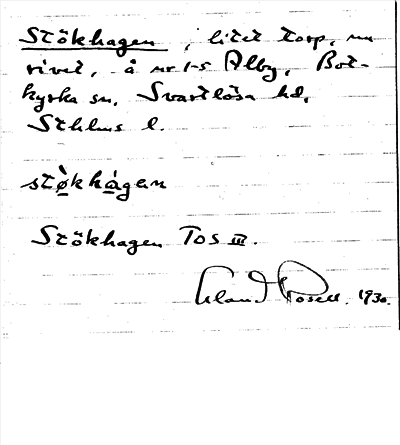 Stökhagen, litet torp, nu
rivet, å nr 1-5 Alby, Bot-
kyrka sn. Svartlösa hd,
Sthlms l.
stö̀khàgan
Stökhagen TOS III.
Erland Rosell. 1930.